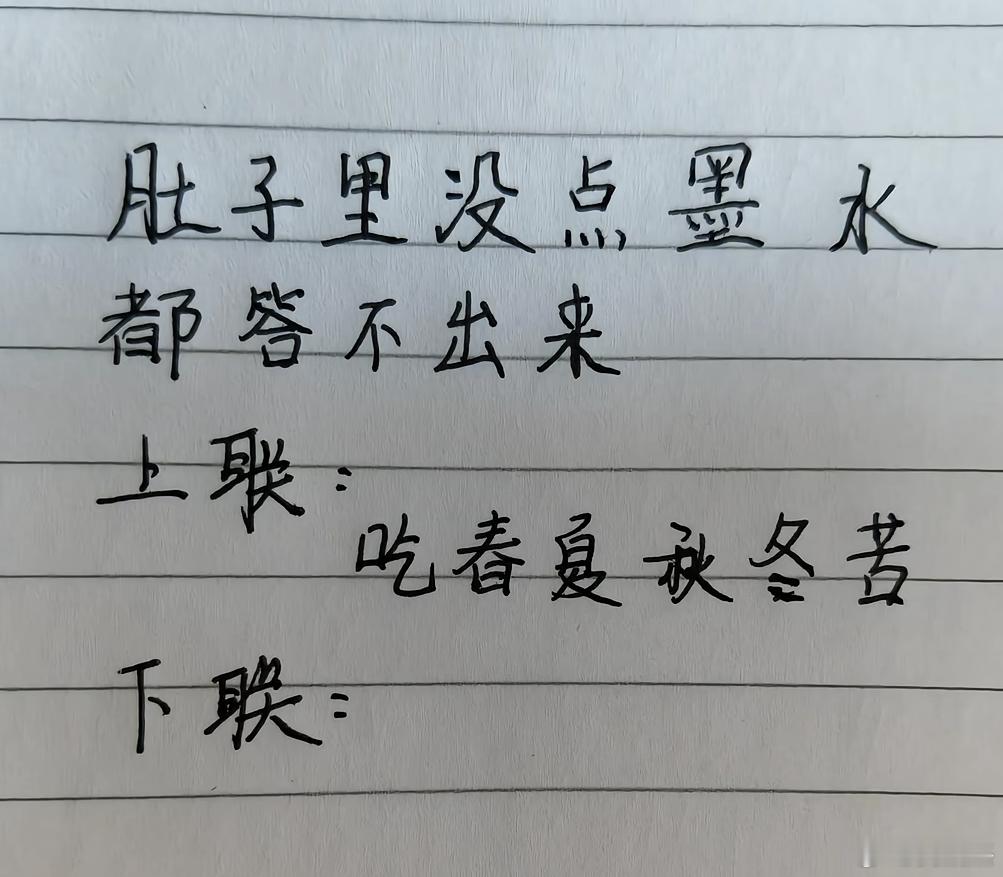 肚子里没点墨水
都答不出来
上联：
吃春夏秋冬苦
下联：